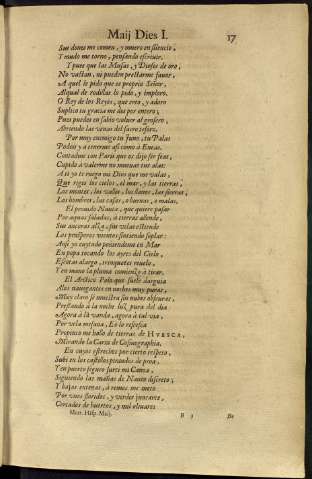 Maij Dies I. 17
Sus dones me comen, y muero en silencio,
Y mudo me torno, pensando escreuir.
Y pues que las Musas, y Dioses de oro,
No vastan, ni pueden prestarme fauor,
A quel le pido que es proprio Señor,
Al qual de rodillas lo pido, y imploro.
O Rey de los Reyes, que creo, y adoro
Suplico tu gracia me des por entero,
Pues puedes en sabio voluer al grosero,
Abriendo las venas del sacro tesoro.
Por muy enemigo tu Juno, tu Palas
Podeis y a teneros así como à Eneas.
Contadme con Paris que os dijo ser feas,
Cupido à valerme no mueuas tus alas:
A ti yo te ruego mi Dios que me valas,
Que riges los cielos, el mar, y las tierras,
Los montes, los valles, los llanos, las sierras,
Los hombres, las casas, à buenas, à malas.
El pesado Nauta, que quiere pasar
Por aguas saladas, à tierras allende,
Sus ancoras alça, sus velas estiende
Los prosperos vientos sintiendo soplar:
Ansi yo cuytado poniendome en Mar
En popa tocando los ayres del Cielo
Escotas alargo, trinquetes reuelo,
Y en mano la pluma comienço à tirar.
El Arctico Polo que suele dar guia
A los nauegantes en noches muy puras,
Muy claro se muestra sin nubes obscuras,
Prestando à la noche luz pura del dia
Agora à la vanda, agora à tal via,
Por vela mesana, Eolo refresca
Propinco me hallo de tierras de HVESCA,
Mirando la Carta de Cosmographia.
En cuyos estrechos por cierto respeto,
Subi en los castillos pintados de pena,
Y en puerto seguro surti mi Carena,
Siguiendo las mañas de Nauta discreto;
Y bajas entenas, à remos me meto
Por rios floridos, y verdes juncares,
Cercados de huertos, y mil oliuares
Mart. Hisp. Maij. B 3 De